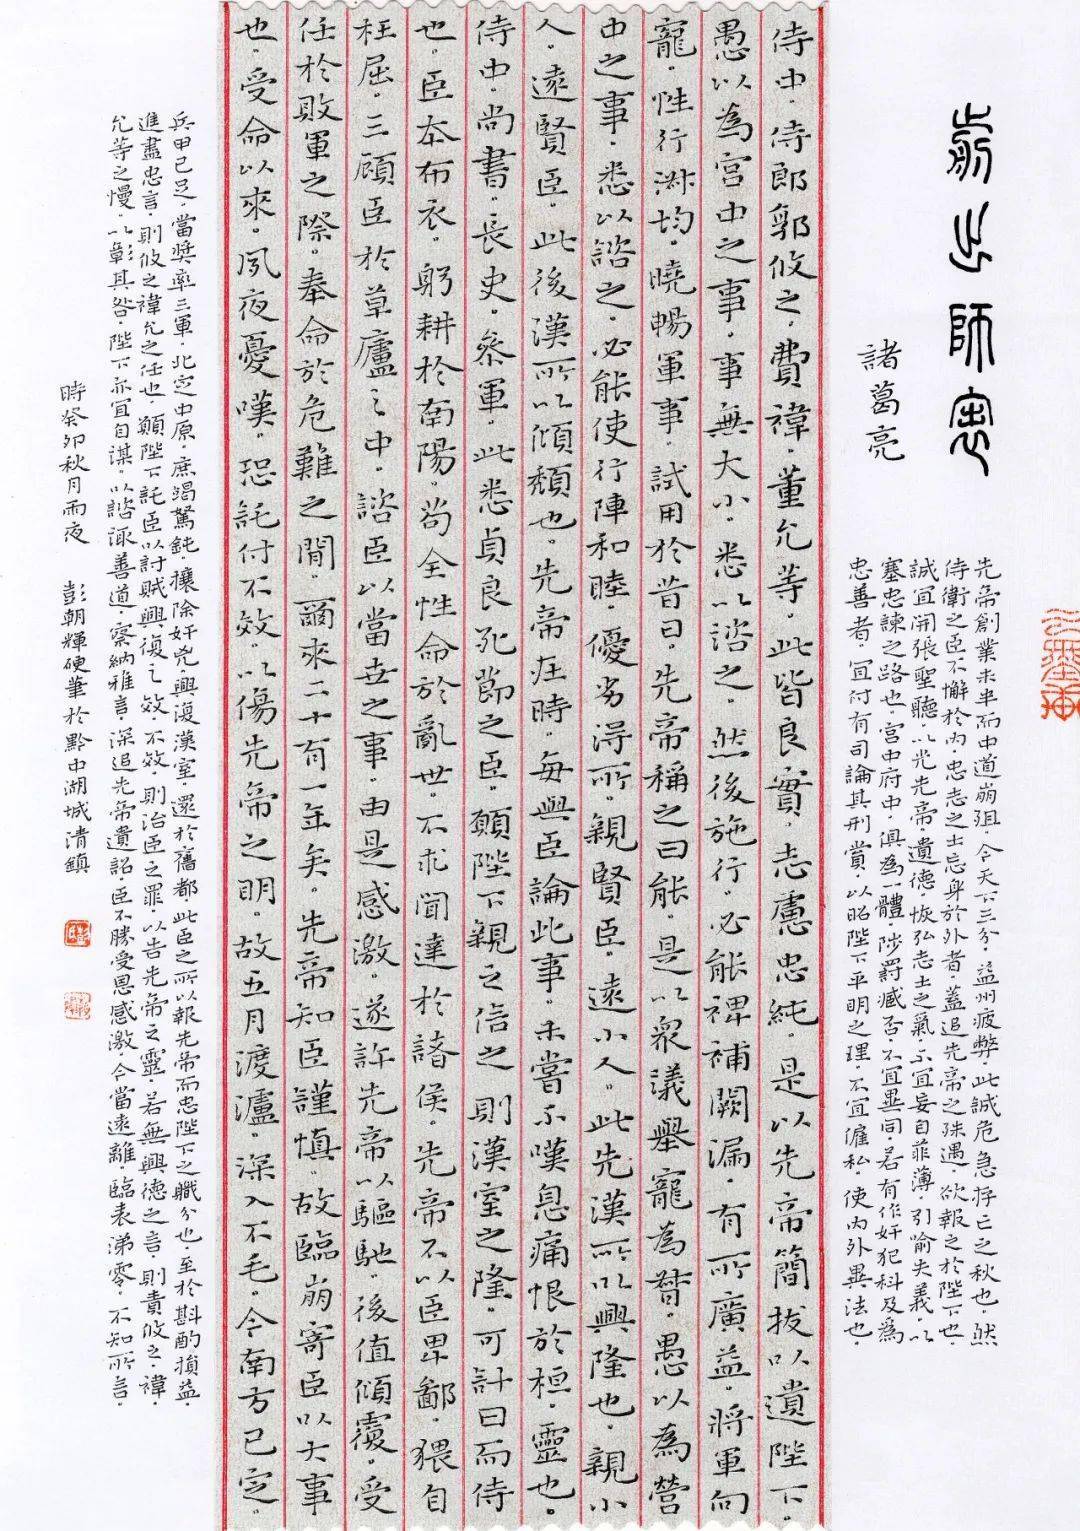 前出師表
諸葛亮
先帝創業未半而中道崩殂今天下三分益州疲弊此誠危急存亡之秋也然
侍衛之臣不懈於內忠志之士忘身於外者蓋追先帝之殊遇欲報之於陛下也
誠宜開張聖聽以光先帝遺德恢弘志士之氣不宜妄自菲薄引喻失義以
塞忠諫之路也宮中府中俱為一體陟罰臧否不宜異同若有作奸犯科及為
忠善者宜付有司論其刑賞以昭陛下平明之理不宜偏私使內外異法也
侍中侍郎郭攸之費禕董允等此皆良實志慮忠純是以先帝簡拔以遺陛下
愚以為宮中之事事無大小悉以諮之然後施行必能裨補闕漏有所廣益將軍向
寵性行淑均曉暢軍事試用於昔日先帝稱之曰能是以眾議舉寵為督愚以為營
中之事悉以諮之必能使行陣和睦優劣得所親賢臣遠小人此先漢所以興隆也親小
人遠賢臣此後漢所以傾頹也先帝在時每與臣論此事未嘗不嘆息痛恨於桓靈也
侍中尚書長史參軍此悉貞良死節之臣願陛下親之信之則漢室之隆可計日而待
也臣本布衣躬耕於南陽苟全性命於亂世不求聞達於諸侯先帝不以臣卑鄙猥自
枉屈三顧臣於草廬之中諮臣以當世之事由是感激遂許先帝以驅馳後值傾覆受
任於敗軍之際奉命於危難之間爾來二十有一年矣先帝知臣謹慎故臨崩寄臣以大事
也受命以來夙夜憂嘆恐託付不效以傷先帝之明故五月渡瀘深入不毛今南方已定
兵甲已足當獎率三軍北定中原庶竭駑鈍攘除奸兇興復漢室還於舊都此臣之所以報先帝而忠陛下之職分也至於斟酌損益
進盡忠言則攸之禕允之任也願陛下託臣以討賊興復之效不效則治臣之罪以告先帝之靈若無興德之言則責攸之禕
允等之慢以彰其咎陛下亦宜自謀以諮諏善道察納雅言深追先帝遺詔臣不勝受恩感激今當遠離臨表涕零不知所言
時癸卯秋月雨夜 彭朝輝硬筆於黔中湖城清鎮